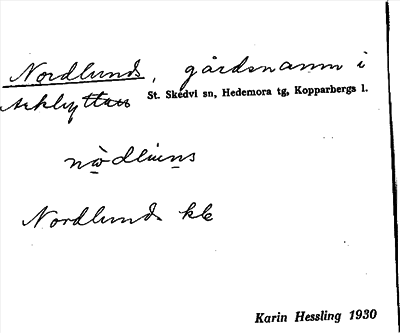 Nordlunds, gårdsnamn i
Arkhyttan St. Skedvi sn, Hedemora tg, Kopparbergs l.
Nordlunds kle
Karin Hessling 1930